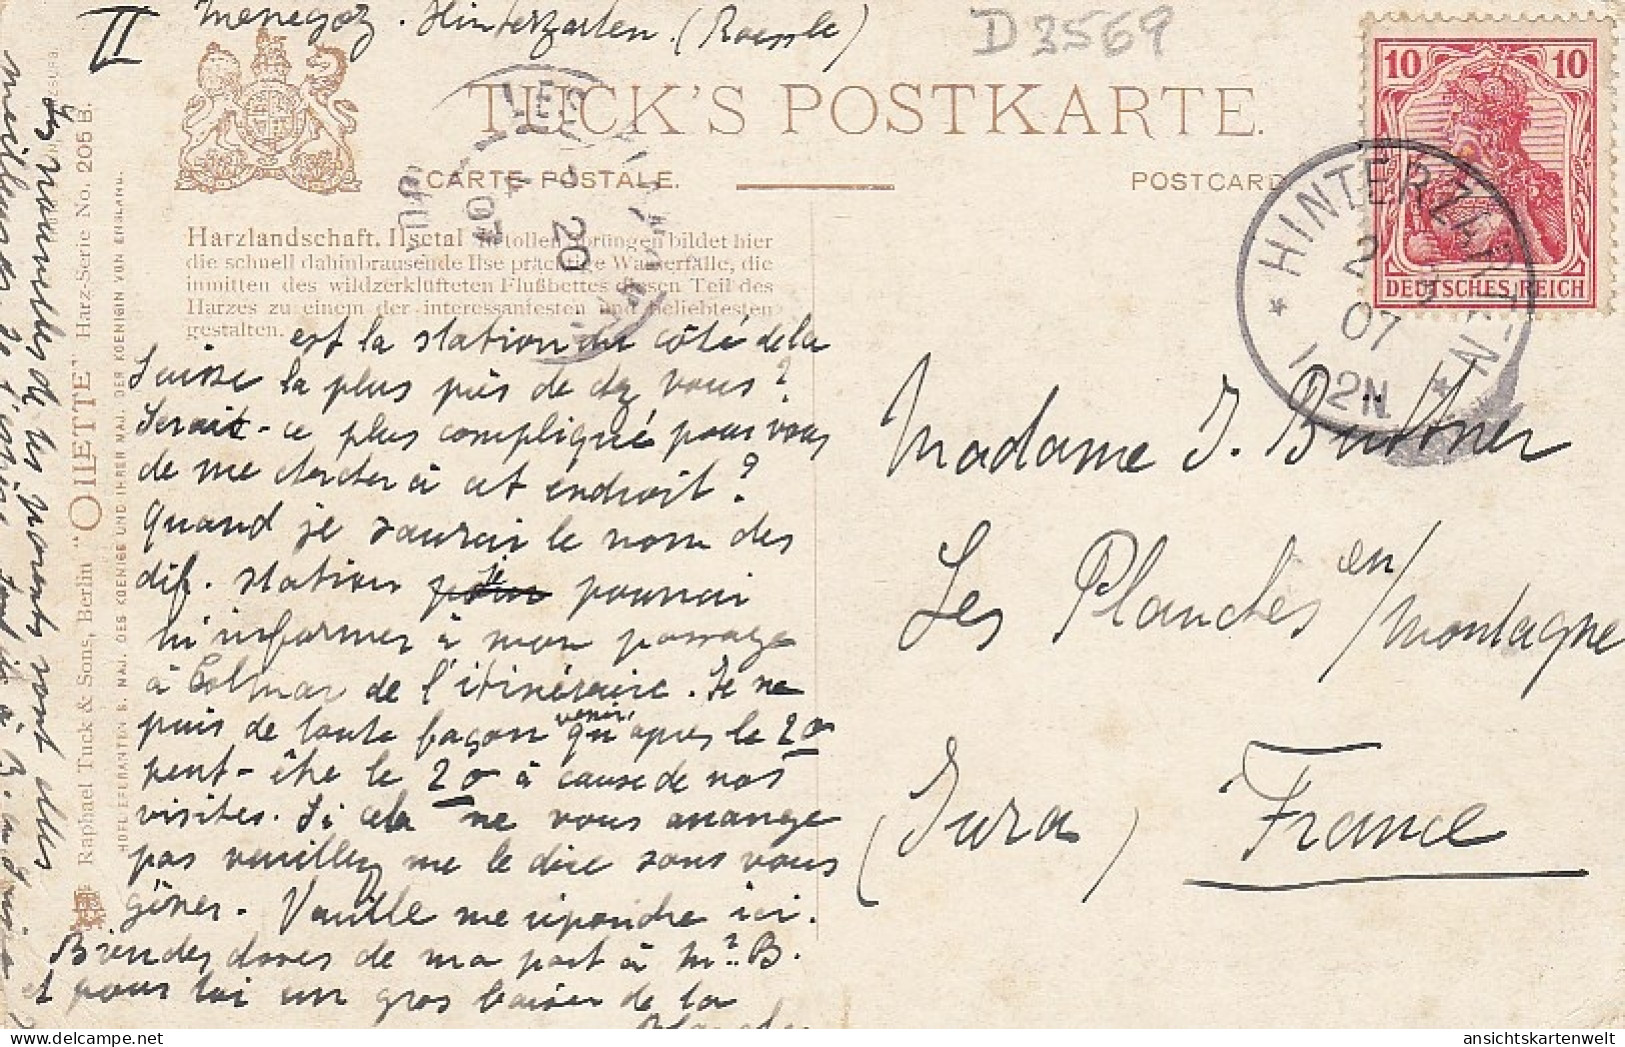 II
Menegoz. Hinterzarten. (Roessle)
D 3569
TUCK'S POSTKARTE.
CARTE POSTALE.
POSTCARD
10 10
DEUTSCHES REICH
* HINTERZARTEN *
2 3
07
1-2N
07
20
Harzlandschaft. Ilsetal In tollen Sprüngen bildet hier
die schnell dahinbrausende Ilse prächtige Wasserfälle, die
inmitten des wildzerklüfteten Flußbettes diesen Teil des
Harzes zu einem der interessantesten und beliebtesten
gestalten.
est la station du côté de la
Suisse la plus près de chez vous?
Serait-ce plus compliqué pour vous
de me chercher à cet endroit?
quand je saurai le nom des
dif. station pourrai
m'informer à mon passage
à Colmar de l'itinéraire. Je ne
puis de toute façon venir qu'après le 20
peut-être le 20 à cause de nos
visites. Si cela ne vous arrange
pas veuillez me le dire sans vous
gêner. Veuille me répondre ici.
Bien des choses de ma part à Mr. B.
et pour toi un gros baiser de la
Madame J. Buttner
Les Planches en/montagne
(Jura) France
Raphael Tuck & Sons, Berlin "OILETTE" Harz-Serie No. 205 B.
HOFLIEFERANTEN S. MAJ. DES KOENIGS UND IHRER MAJ. DER KOENIGIN VON ENGLAND.
Les nouvelles de tes parents sont elles
meilleures?
ansichtskartenwelt